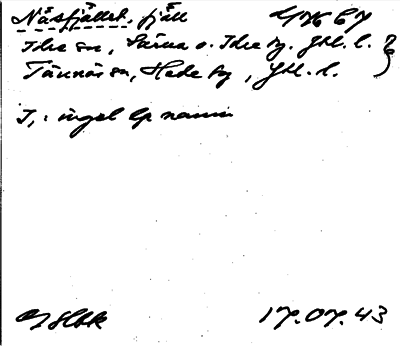 Näsfjället, fjäll 47667
Idre sn, Särna o. Idre tg. Jhl. l. }
Tännäs sn, Hede tg, Jhl. l.
J,: ingel lp namn
17.07.43